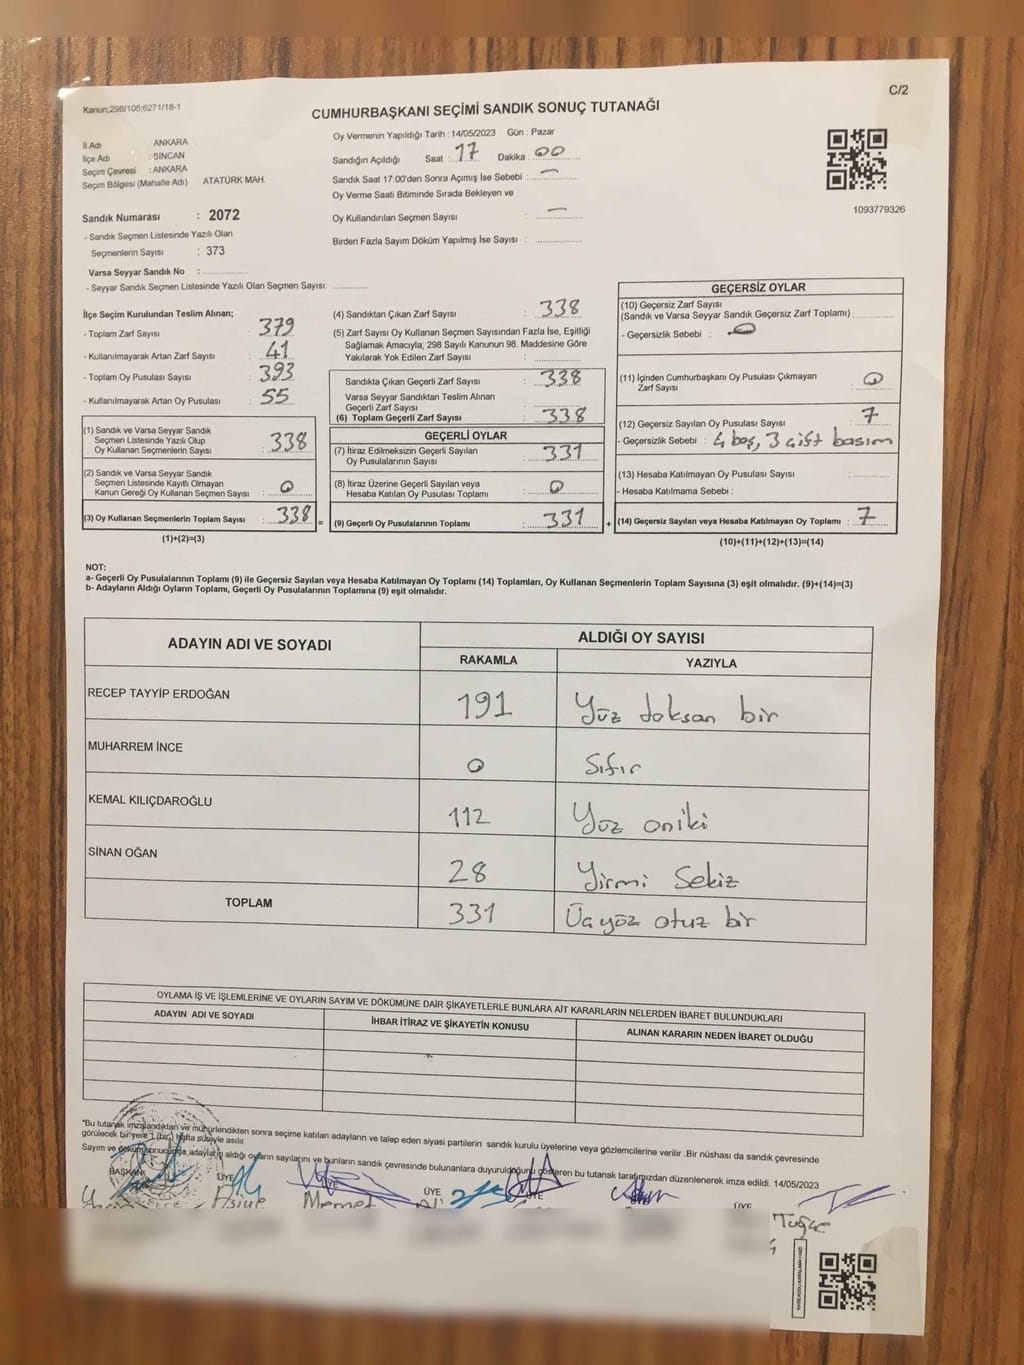 Kanun;298/105;6271/18-1
C/2
CUMHURBAŞKANI SEÇİMİ SANDIK SONUÇ TUTANAĞI
İl Adı ANKARA
İlçe Adı : SİNCAN
Seçim Çevresi : ANKARA
Seçim Bölgesi (Mahalle Adı) ATATÜRK MAH.
Sandık Numarası : 2072
- Sandık Seçmen Listesinde Yazılı Olan
Seçmenlerin Sayısı : 373
Varsa Seyyar Sandık No :
- Seyyar Sandık Seçmen Listesinde Yazılı Olan Seçmen Sayısı:
Oy Vermenin Yapıldığı Tarih : 14/05/2023 Gün : Pazar
Sandığın Açıldığı Saat : 17 Dakika : 00
Sandık Saat 17:00'den Sonra Açımış İse Sebebi : —
Oy Verme Saati Bitiminde Sırada Bekleyen ve
Oy Kullandırılan Seçmen Sayısı : —
Birden Fazla Sayım Döküm Yapılmış İse Sayısı :
1093779326
İlçe Seçim Kurulundan Teslim Alınan;
- Toplam Zarf Sayısı : 379
- Kullanılmayarak Artan Zarf Sayısı : 41
- Toplam Oy Pusulası Sayısı : 393
- Kullanılmayarak Artan Oy Pusulası : 55
(1) Sandık ve Varsa Seyyar Sandık
Seçmen Listesinde Yazılı Olup
Oy Kullanan Seçmenlerin Sayısı : 338
(2) Sandık ve Varsa Seyyar Sandık
Seçmen Listesinde Kayıtlı Olmayan
Kanun Gereği Oy Kullanan Seçmen Sayısı : 0
(3) Oy Kullanan Seçmenlerin Toplam Sayısı : 338 =
(1)+(2)=(3)
(4) Sandıktan Çıkan Zarf Sayısı : 338
(5) Zarf Sayısı Oy Kullanan Seçmen Sayısından Fazla İse, Eşitliği
Sağlamak Amacıyla; 298 Sayılı Kanunun 98. Maddesine Göre
Yakılarak Yok Edilen Zarf Sayısı :
Sandıkta Çıkan Geçerli Zarf Sayısı : 338
Varsa Seyyar Sandıktan Teslim Alınan
Geçerli Zarf Sayısı :
(6) Toplam Geçerli Zarf Sayısı : 338
GEÇERLİ OYLAR
(7) İtiraz Edilmeksizin Geçerli Sayılan
Oy Pusulalarının Sayısı : 331
(8) İtiraz Üzerine Geçerli Sayılan veya
Hesaba Katılan Oy Pusulası Toplamı : 0
(9) Geçerli Oy Pusulalarının Toplamı : 331 +
GEÇERSİZ OYLAR
(10) Geçersiz Zarf Sayısı
(Sandık ve Varsa Seyyar Sandık Geçersiz Zarf Toplamı) :
- Geçersizlik Sebebi :
(11) İçinden Cumhurbaşkanı Oy Pusulası Çıkmayan
Zarf Sayısı : 0
(12) Geçersiz Sayılan Oy Pusulası Sayısı : 7
- Geçersizlik Sebebi : 4 boş, 3 çift basım
(13) Hesaba Katılmayan Oy Pusulası Sayısı :
- Hesaba Katılmama Sebebi :
(14) Geçersiz Sayılan veya Hesaba Katılmayan Oy Toplamı : 7
(10)+(11)+(12)+(13)=(14)
NOT:
a- Geçerli Oy Pusulalarının Toplamı (9) ile Geçersiz Sayılan veya Hesaba Katılmayan Oy Toplamı (14) Toplamları, Oy Kullanan Seçmenlerin Toplam Sayısına (3) eşit olmalıdır. (9)+(14)=(3)
b- Adayların Aldığı Oyların Toplamı, Geçerli Oy Pusulalarının Toplamına (9) eşit olmalıdır.
ADAYIN ADI VE SOYADI ALDIĞI OY SAYISI
RAKAMLA YAZIYLA
RECEP TAYYİP ERDOĞAN 191 Yüz doksan bir
MUHARREM İNCE 0 Sıfır
KEMAL KILIÇDAROĞLU 112 Yüz oniki
SİNAN OĞAN 28 Yirmi Sekiz
TOPLAM 331 Üçyüz otuz bir
OYLAMA İŞ VE İŞLEMLERİNE VE OYLARIN SAYIM VE DÖKÜMÜNE DAİR ŞİKAYETLERLE BUNLARA AİT KARARLARIN NELERDEN İBARET BULUNDUKLARI
ADAYIN ADI VE SOYADI İHBAR İTİRAZ VE ŞİKAYETİN KONUSU ALINAN KARARIN NEDEN İBARET OLDUĞU
"Bu tutanak imzalandıktan ve mühürlendikten sonra seçime katılan adayların ve talep eden siyasi partilerin sandık kurulu üyelerine veya gözlemcilerine verilir .Bir nüshası da sandık çevresinde
görülecek bir yere 1 (bir) hafta süreyle asılır.
Sayım ve döküm sonucunda adayların aldığı oyların sayılarını ve bunların sandık çevresinde bulunanlara duyurulduğunu gösteren bu tutanak tarafımızdan düzenlenerek imza edildi. 14/05/2023
BAŞKAN ÜYE ÜYE ÜYE ÜYE
Asiye Memet
Tuğçe